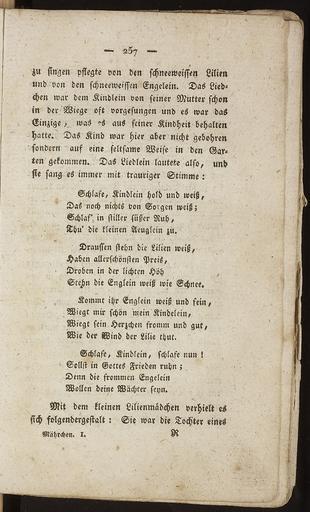 — 257 —
zu singen pflegte von den schneeweissen Lilien
und von den schneeweissen Engelein. Das Lied-
chen war dem Kindlein von seiner Mutter schon
in der Wiege oft vorgesungen und es war das
Einzige, was es aus seiner Kindheit behalten
hatte. Das Kind war hier aber nicht gebohren
sondern auf eine seltsame Weise in den Gar-
ten gekommen. Das Liedlein lautete also, und
sie sang es immer mit trauriger Stimme:
Schlafe, Kindlein hold und weiß,
Das noch nichts von Sorgen weiß;
Schlaf' in stiller süßer Ruh,
Thu' die kleinen Aeuglein zu.
Draussen stehn die Lilien weiß,
Haben allerschönsten Preis,
Droben in der lichten Höh
Stehn die Englein weiß wie Schnee.
Kommt ihr Englein weiß und fein,
Wiegt mir schön mein Kindelein,
Wiegt sein Herzchen fromm und gut,
Wie der Wind der Lilie thut.
Schlafe, Kindlein, schlafe nun!
Sollst in Gottes Frieden ruhn;
Denn die frommen Engelein
Wollen deine Wächter seyn.
Mit dem kleinen Lilienmädchen verhielt es
sich folgendergestalt: Sie war die Tochter eines
Mährchen. I. R